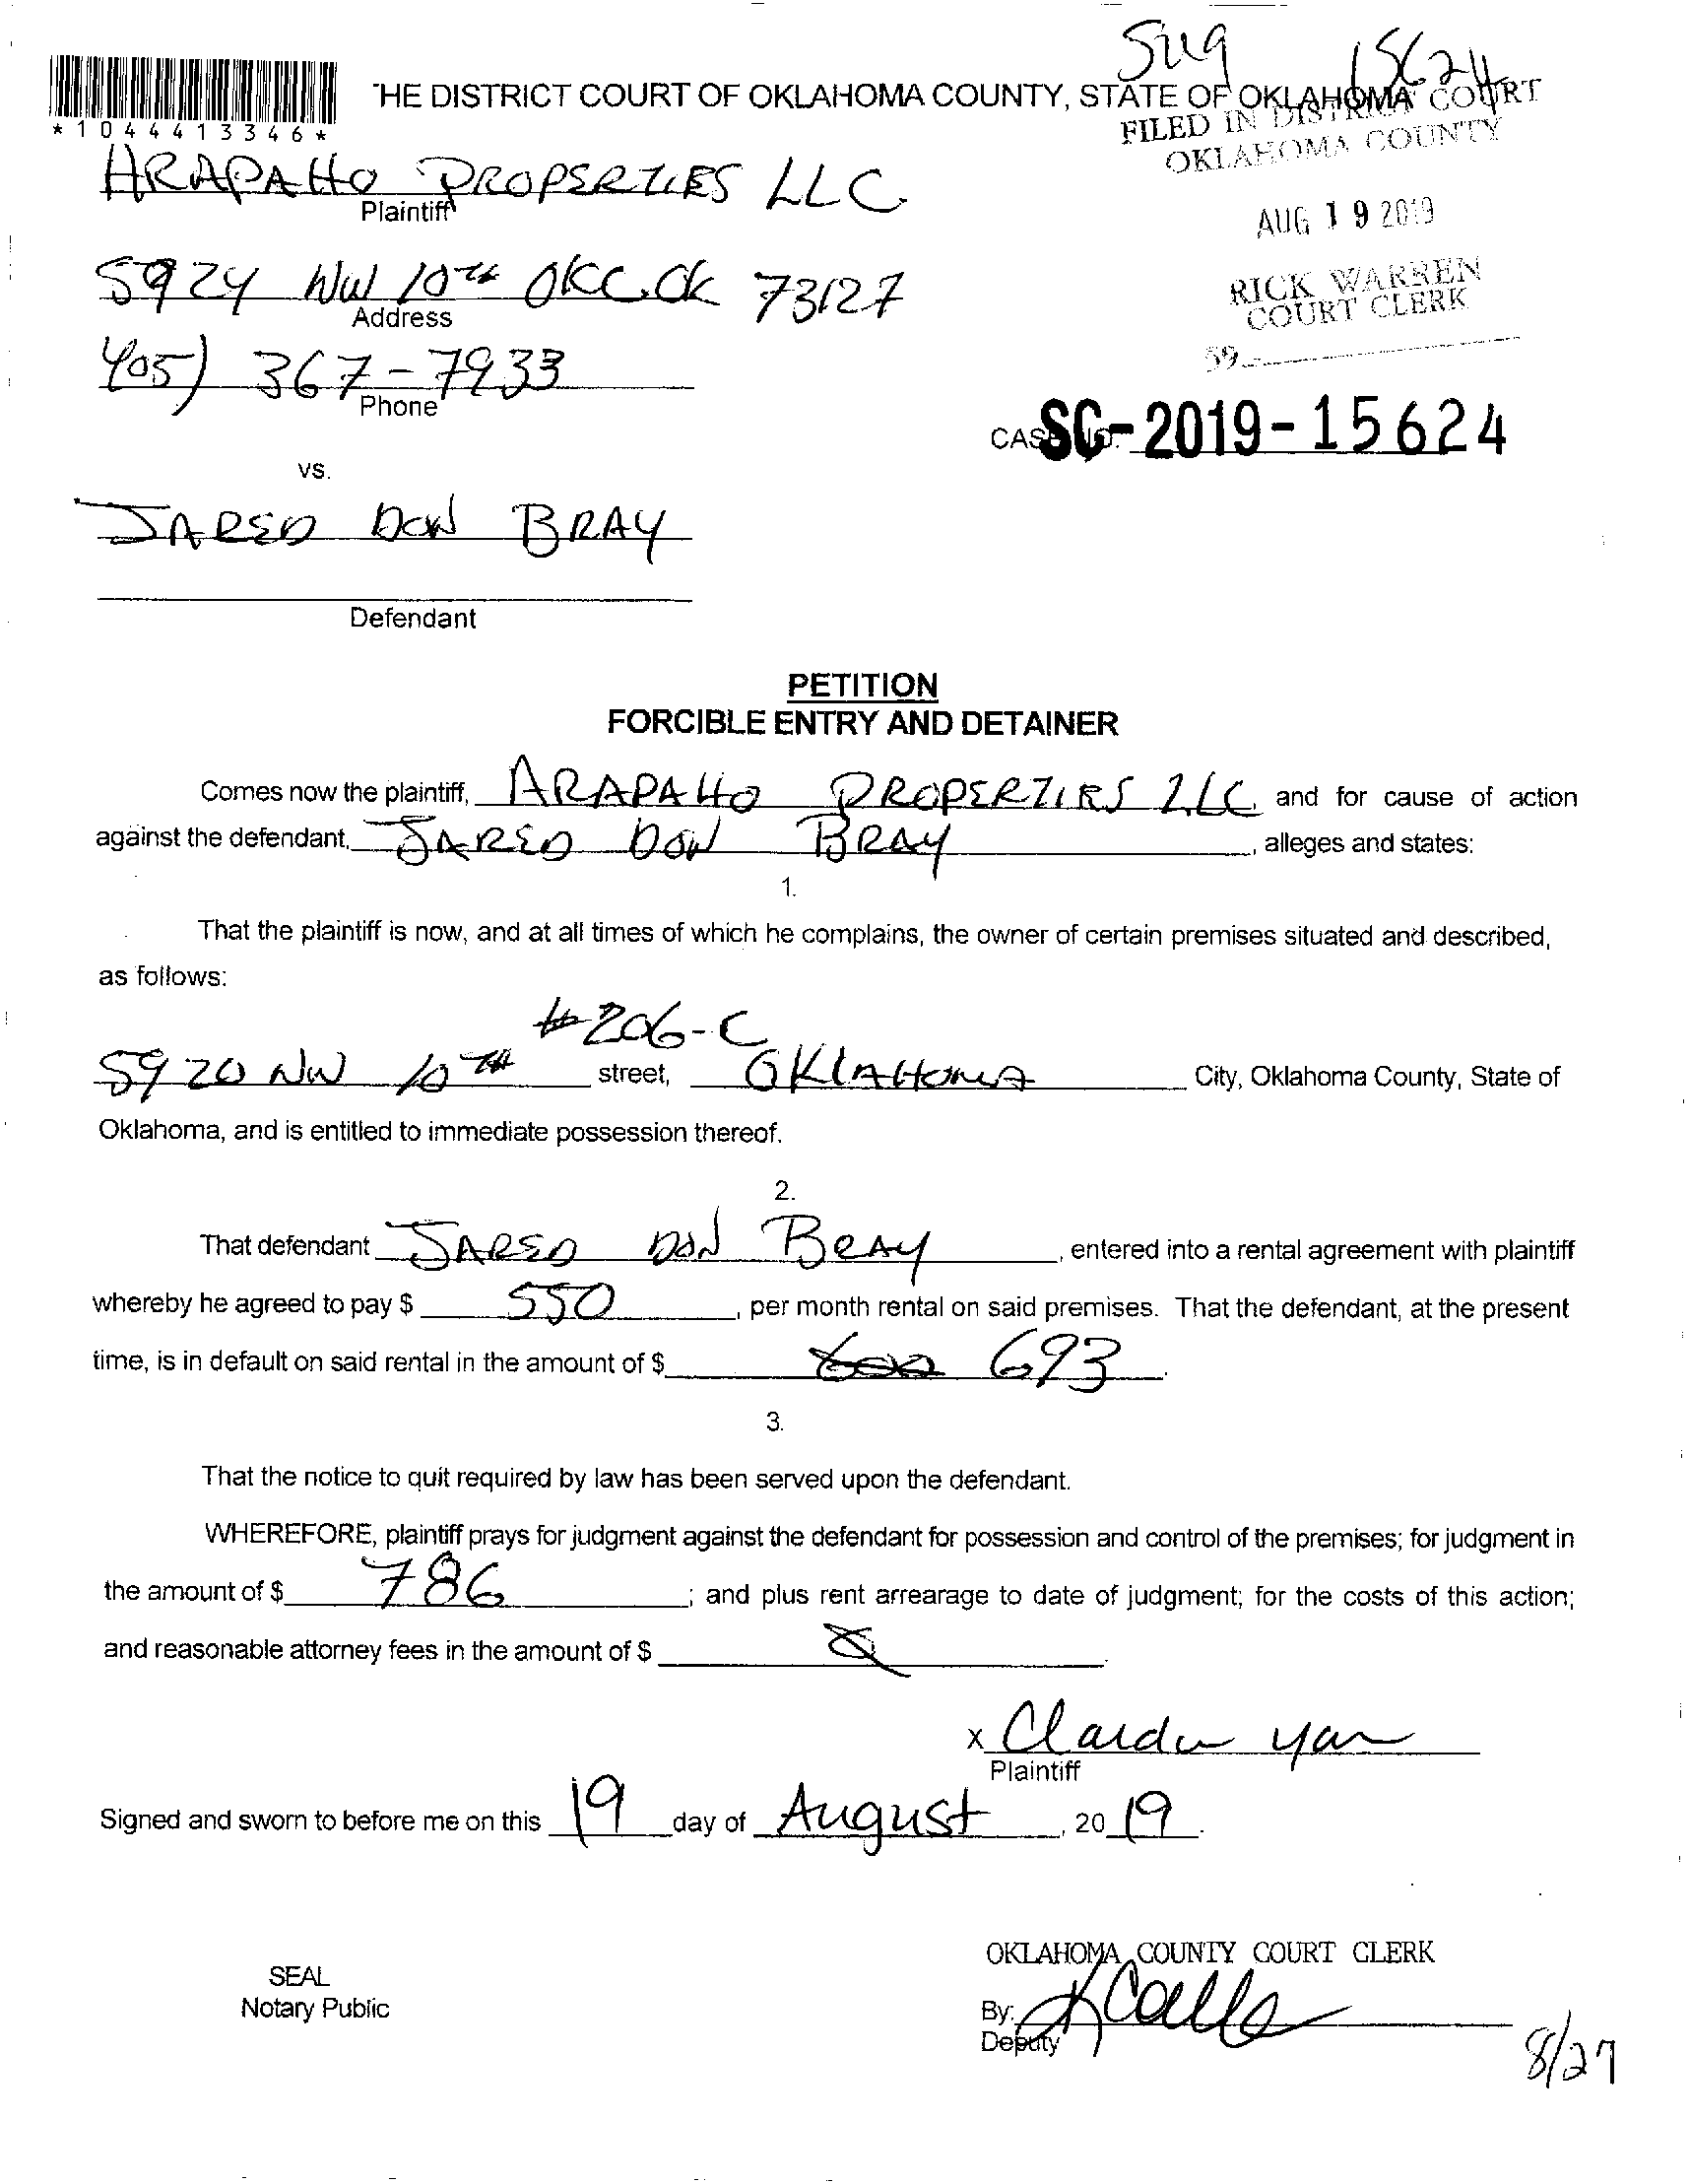 Sug 15624
THE DISTRICT COURT OF OKLAHOMA COUNTY, STATE OF OKLAHOMA
*1044413346*
FILED IN DISTRICT COURT
OKLAHOMA COUNTY
ARAPAHO PROPERTIES LLC
Plaintiff
AUG 19 2019
5924 NW 10TH OKC.OK 73127
Address
RICK WARREN
COURT CLERK
405) 367-7933
Phone
59
CASE NO. SC-2019-15624
vs.
JARED DON BRAY
Defendant
PETITION
FORCIBLE ENTRY AND DETAINER
Comes now the plaintiff, ARAPAHO PROPERTIES LLC, and for cause of action
against the defendant, JARED DON BRAY, alleges and states:
1.
That the plaintiff is now, and at all times of which he complains, the owner of certain premises situated and described,
as follows:
#206-C
5920 NW 10TH street, OKLAHOMA City, Oklahoma County, State of
Oklahoma, and is entitled to immediate possession thereof.
2.
That defendant JARED DON BRAY, entered into a rental agreement with plaintiff
whereby he agreed to pay $ 550, per month rental on said premises. That the defendant, at the present
time, is in default on said rental in the amount of $ 693.
3.
That the notice to quit required by law has been served upon the defendant.
WHEREFORE, plaintiff prays for judgment against the defendant for possession and control of the premises; for judgment in
the amount of $ 786; and plus rent arrearage to date of judgment; for the costs of this action;
and reasonable attorney fees in the amount of $
x
Plaintiff
Signed and sworn to before me on this 19 day of August, 2019.
OKLAHOMA COUNTY COURT CLERK
SEAL
Notary Public
By:
Deputy
8/27